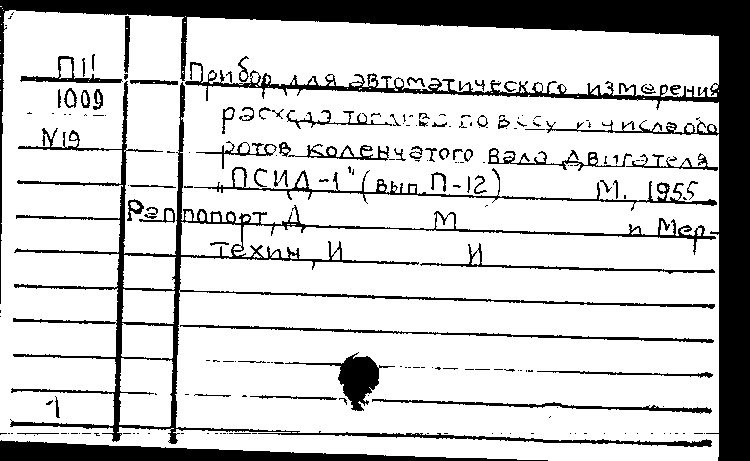 П11 Прибор для автоматического измерения
1009 расхода топлива по весу и числа обо
N19 ротов коленчатого вала двигателя
„ПСИД-1" (вып. П-12) М., 1955
Раппопорт, Д М и Мер-
техин, И И
1